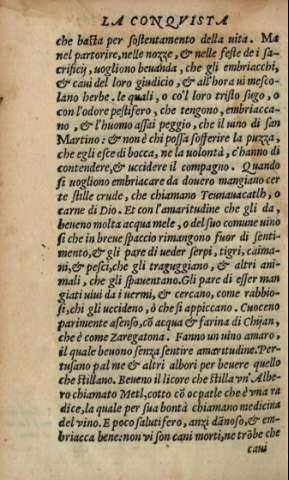 LA CONQVISTA
che basta per sostentamento della uita. Ma
nel partorire, nelle nozze, & nelle feste de i sa-
crificij, uogliono beuanda, che gli embriacchi,
& caui del loro giudicio, & all'hora ui mesco-
lano herbe. le quali, o co'l loro tristo sugo, o
con l'odore pestifero, che tengono, embriacca-
no, & l'huomo assai peggio, che il uino di san
Martino: & non è chi possa sofferire la puzza,
che egli esce di bocca, ne la volontà, c'hanno di
contendere, & uccidere il compagno. Quando
si uogliono embriacare da douero mangiano cer
te stille crude, che chiamano Teunauacatlh, o
carne di Dio. Et con l'amaritudine che gli da,
beueno molta acqua mele, o del suo comune uino
si che in breue spaccio rimangono fuor di senti-
mento, & gli pare di ueder serpi, tigri, caima-
ni, & pesci, che gli tragueggiano, & altri ani-
mali, che gli spauentano. Gli pare di esser man
giati uiui da i uermi, & cercano, come rabbio-
si, chi gli uccideno, ò che si appiccano. Cuoceno
parimente asenso, cō acqua & farina di Chijan,
che è come Zaregatona. Fanno un uino amaro,
il quale beuono senza sentire amaritudine. Per-
tusano palme & altri albori per beuere quello
che stillano. Beueno il licore che stilla vn'Albe-
ro chiamato Metl, cotto cō ocpatle che è vna ra
dice, la quale per sua bontà chiamano medicina
del vino. E poco salutifero, anzi dānoso, & em-
briacca bene: non vi son cani morti, ne trōbe che
caui